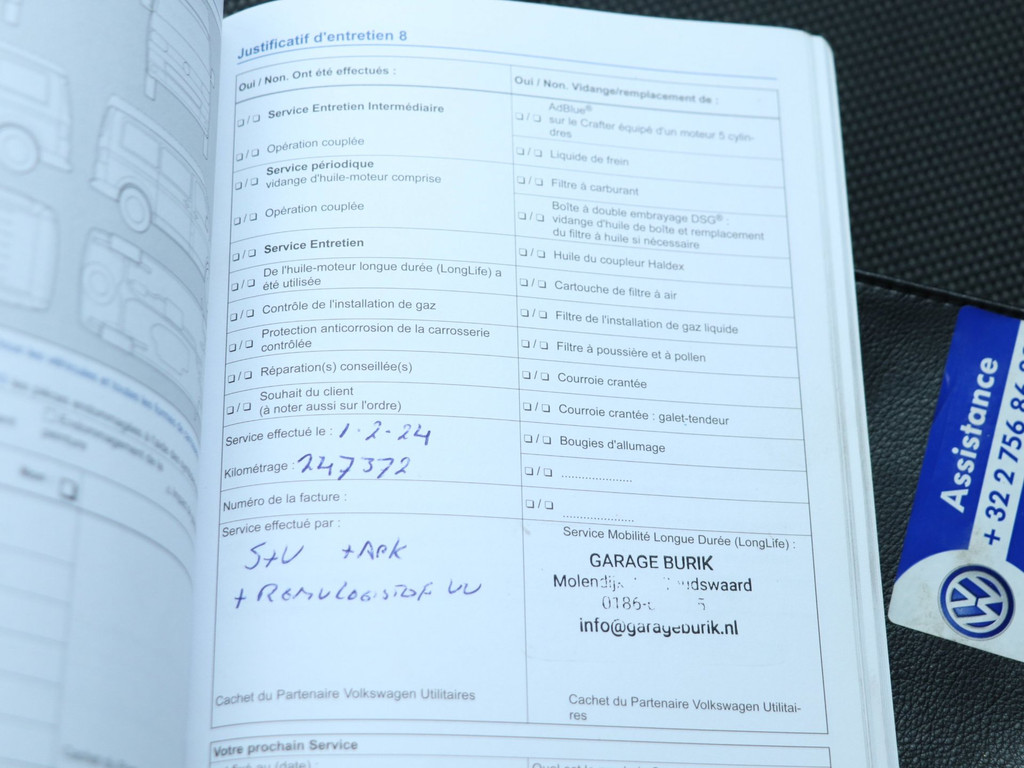 Justificatif d'entretien 8
Oui / Non. Ont été effectués :
❏ / ❏ Service Entretien Intermédiaire
❏ / ❏ Opération couplée
❏ / ❏ Service périodique
vidange d'huile-moteur comprise
❏ / ❏ Opération couplée
❏ / ❏ Service Entretien
❏ / ❏ De l'huile-moteur longue durée (LongLife) a
été utilisée
❏ / ❏ Contrôle de l'installation de gaz
❏ / ❏ Protection anticorrosion de la carrosserie
contrôlée
❏ / ❏ Réparation(s) conseillée(s)
❏ / ❏ Souhait du client
(à noter aussi sur l'ordre)
Service effectué le : 1-2-24
Kilométrage : 247372
Numéro de la facture :
Service effectué par :
+ APK
Cachet du Partenaire Volkswagen Utilitaires
Oui / Non. Vidange/remplacement de :
❏ / ❏ AdBlue®
sur le Crafter équipé d'un moteur 5 cylin-
dres
❏ / ❏ Liquide de frein
❏ / ❏ Filtre à carburant
❏ / ❏ Boîte à double embrayage DSG® :
vidange d'huile de boîte et remplacement
du filtre à huile si nécessaire
❏ / ❏ Huile du coupleur Haldex
❏ / ❏ Cartouche de filtre à air
❏ / ❏ Filtre de l'installation de gaz liquide
❏ / ❏ Filtre à poussière et à pollen
❏ / ❏ Courroie crantée
❏ / ❏ Courroie crantée : galet-tendeur
❏ / ❏ Bougies d'allumage
❏ / ❏ .....................
❏ / ❏ .....................
Service Mobilité Longue Durée (LongLife) :
GARAGE BURIK
info@garageburik.nl
Cachet du Partenaire Volkswagen Utilitai-
res
Votre prochain Service
Assistance
+ 32 2 756 86
VW